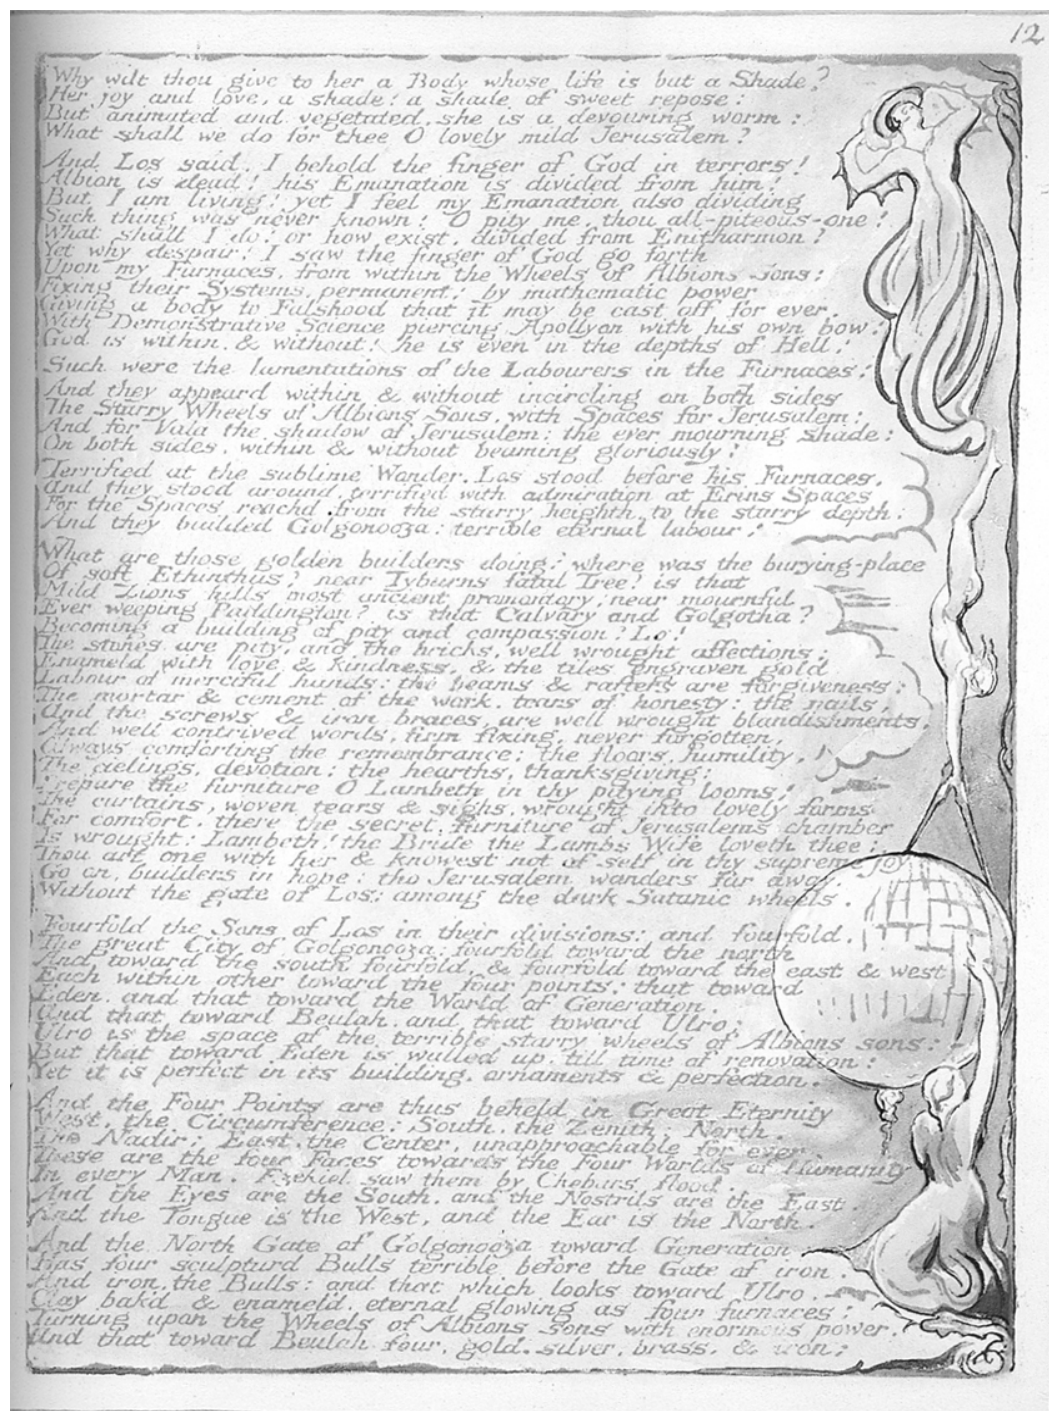 12
Why wilt thou give to her a Body whose life is but a Shade?
Her joy and love, a shade: a shade of sweet repose:
But animated and vegetated, she is a devouring worm:
What shall we do for thee O lovely mild Jerusalem?
And Los said. I behold the finger of God in terrors!
Albion is dead! his Emanation is divided from him!
But I am living! yet I feel my Emanation also dividing
Such thing was never known! O pity me, thou all-piteous-one!
What shall I do! or how exist, divided from Enitharmon?
Yet why despair! I saw the finger of God go forth
Upon my Furnaces, from within the Wheels of Albions Sons:
Fixing their Systems, permanent: by mathematic power
Giving a body to Falshood that it may be cast off for ever.
With Demonstrative Science piercing Apollyon with his own bow:
God is within, & without! he is even in the depths of Hell!
Such were the lamentations of the Labourers in the Furnaces!
And they appeard within & without incircling on both sides
The Starry Wheels of Albions Sons, with Spaces for Jerusalem:
And for Vala the shadow of Jerusalem: the ever mourning shade:
On both sides, within & without beaming gloriously!
Terrified at the sublime Wonder, Los stood before his Furnaces.
And they stood around, terrified with admiration at Erins Spaces
For the Spaces reachd from the starry heighth, to the starry depth:
And they builded Golgonooza: terrible eternal labour!
What are those golden builders doing? where was the burying-place
Of soft Ethinthus? near Tyburns fatal Tree? is that
Mild Zions hills most ancient promontory; near mournful
Ever weeping Paddington? is that Calvary and Golgotha?
Becoming a building of pity and compassion? Lo!
The stones are pity, and the bricks, well wrought affections:
Enameld with love & kindness, & the tiles engraven gold
Labour of merciful hands: the beams & rafters are forgiveness:
The mortar & cement of the work, tears of honesty: the nails,
And the screws & iron braces, are well wrought blandishments,
And well contrived words, firm fixing, never forgotten,
Always comforting the remembrance: the floors, humility,
The cielings, devotion: the hearths, thanksgiving:
Prepare the furniture O Lambeth in thy pitying looms!
The curtains, woven tears & sighs, wrought into lovely forms
For comfort. there the secret furniture of Jerusalems chamber
Is wrought: Lambeth! the Bride the Lambs Wife loveth thee:
Thou art one with her & knowest not of self in thy supreme joy.
Go on, builders in hope: tho Jerusalem wanders far away,
Without the gate of Los: among the dark Satanic wheels.
Fourfold the Sons of Los in their divisions: and fourfold,
The great City of Golgonooza: fourfold toward the north
And toward the south fourfold, & fourfold toward the east & west
Each within other toward the four points: that toward
Eden, and that toward the World of Generation,
And that toward Beulah, and that toward Ulro:
Ulro is the space of the terrible starry wheels of Albions sons:
But that toward Eden is walled up, till time of renovation:
Yet it is perfect in its building, ornaments & perfection.
And the Four Points are thus beheld in Great Eternity
West, the Circumference: South, the Zenith: North,
The Nadir: East, the Center, unapproachable for ever.
These are the four Faces towards the Four Worlds of Humanity
In every Man. Ezekiel saw them by Chebars flood.
And the Eyes are the South, and the Nostrils are the East.
And the Tongue is the West, and the Ear is the North.
And the North Gate of Golgonooza toward Generation
Has four sculpturd Bulls terrible before the Gate of iron.
And iron, the Bulls: and that which looks toward Ulro,
Clay bakd & enameld, eternal glowing as four furnaces:
Turning upon the Wheels of Albions sons with enormous power.
And that toward Beulah four, gold, silver, brass, & iron: